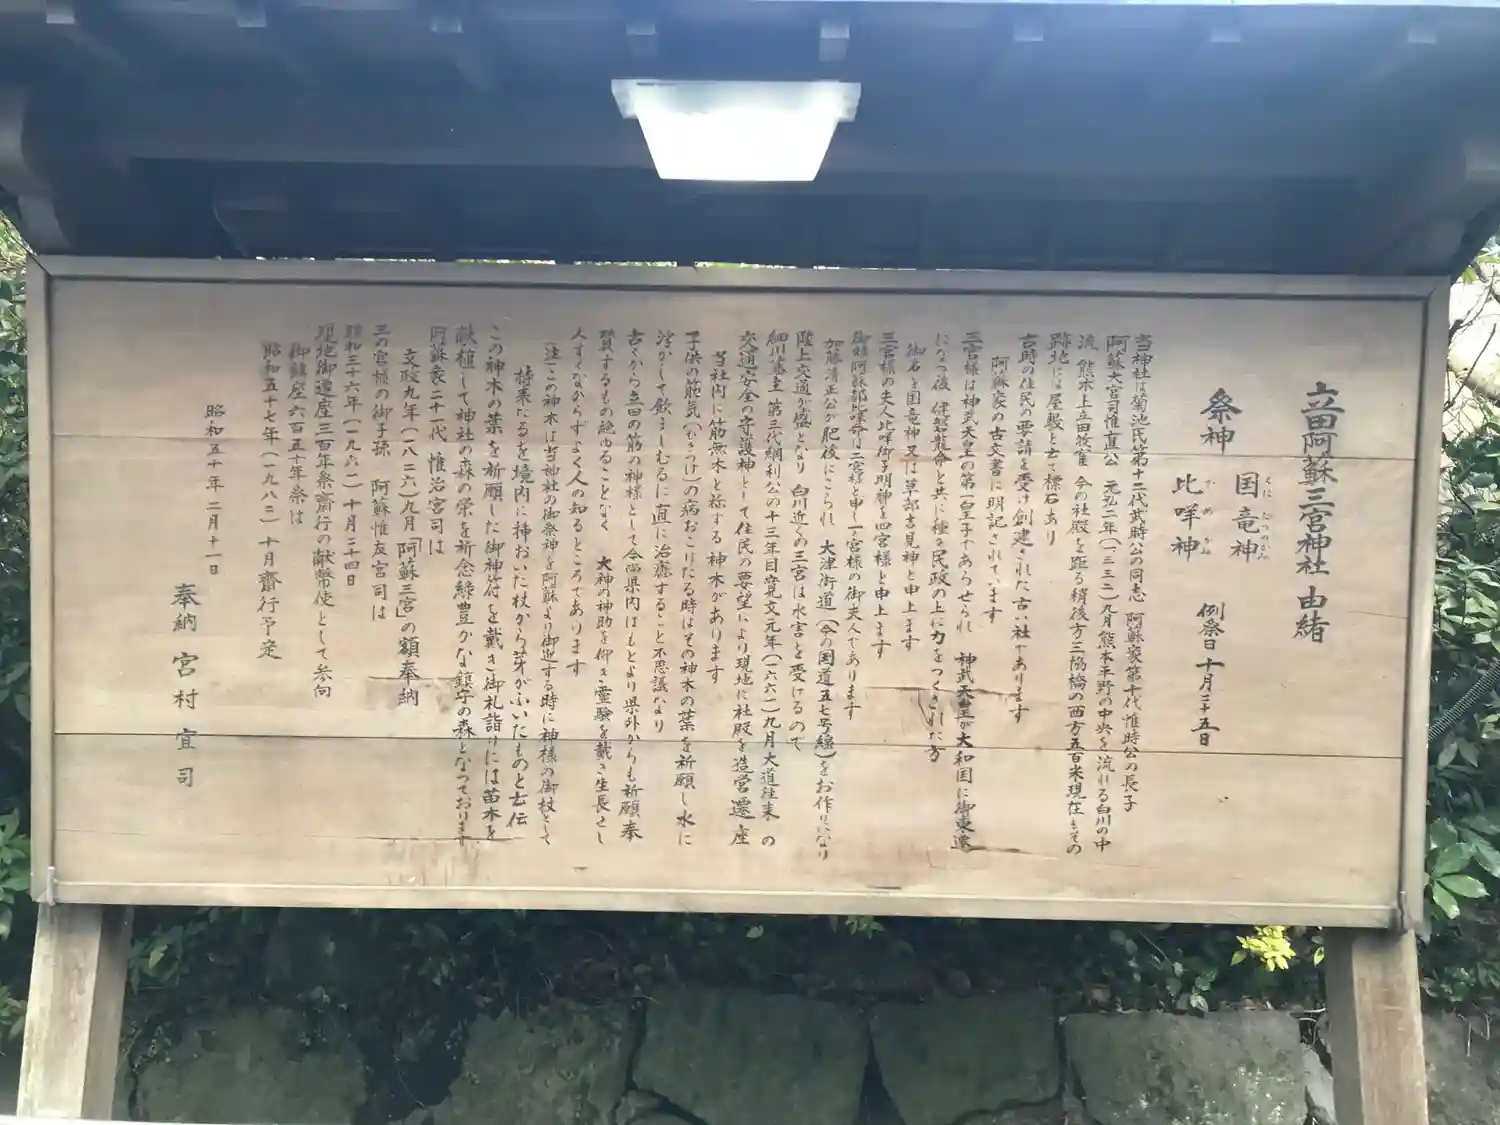 立田阿蘇三宮神社由緒
祭神
国竜神
くにたつのかみ
比咩神
ひめがみ
例祭日 十月二十五日
当神社は菊池氏第十二代武時公の同志 阿蘇家第十代惟時公の長子
阿蘇大宮司惟直公 元弘二年(一三三二)九月熊本平野の中央を流れる白川の中
流 熊本上立田牧雀 今の社殿を距る稍後方三協橋の西方五百米現在もその
跡地には屋敷と云て標石あり
古時の住民の要請を受け創建された古い社であります
阿蘇家の古文書に明記されています
三宮様は神武天皇の第一皇子であらせられ 神武天皇が大和国に御東遷
になつ後 健磐龍命と共に種々民政の上に力をつくされた方
御名を国竜神又は草部吉見神と申上ます
三宮様の夫人比咩御子明神を四宮様と申上ます
御妹阿蘇都比咩命は二宮様と申し一宮様の御夫人であります
加藤清正公が肥後にこられ 大津街道(今の国道五七号線)をお作りになり
陸上交通が盛となり 白川近くの三宮は水害を受けるので
細川藩主 第三代綱利公の十三年目寛文元年(一六六一)九月大道往来の
交通安全の守護神として住民の要望により現地に社殿を造営遷座
当社内に筋無木と称する神木があります
子供の筋気(むしけ)の病おこりたる時はその神木の葉を祈願し水に
浮かして飲ましむるに直に治癒すること不思議なり
古くから立田の筋の神様として今尚県内はもとより県外からも祈願奉
賛するもの絶ゆることなく 大神の神助を仰ぎ霊験を戴き生長せし
人すくなからずよく人の知るところであります
(注)この神木は当神社の御祭神を阿蘇より御迎する時に神様の御杖として
持来なるを境内に挿おいた杖から芽がふいたものと云伝
この神木の葉を祈願した御神符を戴き御礼詣りには苗木を
献植して神社の森の栄を祈念緑豊かな鎮守の森となっております
阿蘇家二十一代 惟治宮司は
文政九年(一八二六)九月「阿蘇三宮」の額奉納
三の宮様の御子孫 阿蘇惟友宮司は
昭和三十六年(一九六一)十月二十四日
現地御遷座三百年祭齋行の献幣使として参向
御鎮座六百五十年の祭は
昭和五十七年(一九八二)十月齋行予定
昭和五十年二月十一日
奉納 宮村宜司